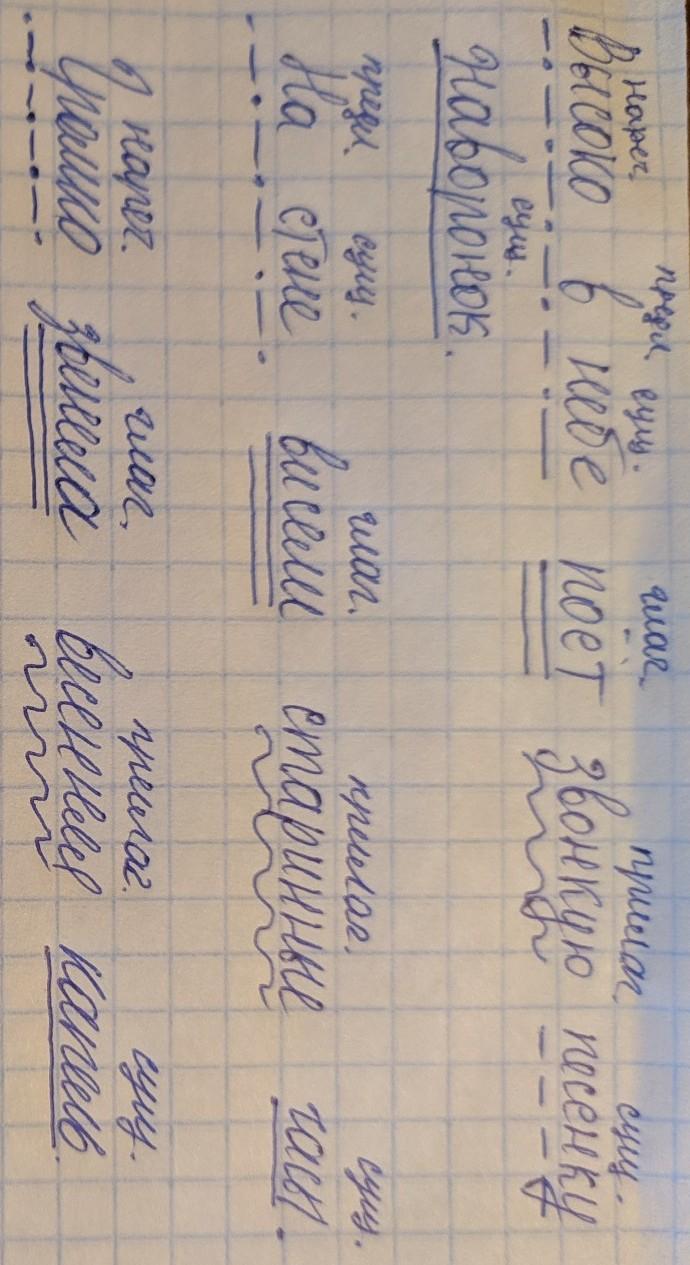 нареч. предл. сущ. глаг. прилаг. сущ.
Высоко в небе поёт звонкую песенку
сущ.
жаворонок.
предл. сущ. глаг. прилаг. сущ.
На стене висели старинные часы.
нареч. глаг. прилаг. сущ.
Громко звенела весенняя капель.